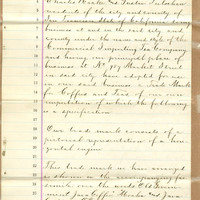 Charles Bocker and Foster Dutcher
residents of the city and county of
San Francisco State of California doing
business at and in the said city and
county under the name and style of the
Commercial Importing Tea Company
and having our principal place of
business at No 107 Market Street
in said city have adopted for our
use and business a Trade Mark
for Coffee and Tea of our own
importation of which the following
is a specification
Our trade mark consists of a
pictorial representation of a
This trade mark we have arranged
as shown in the accompanying fac
simile over the words Old Govern
ment Java Coffee and Java